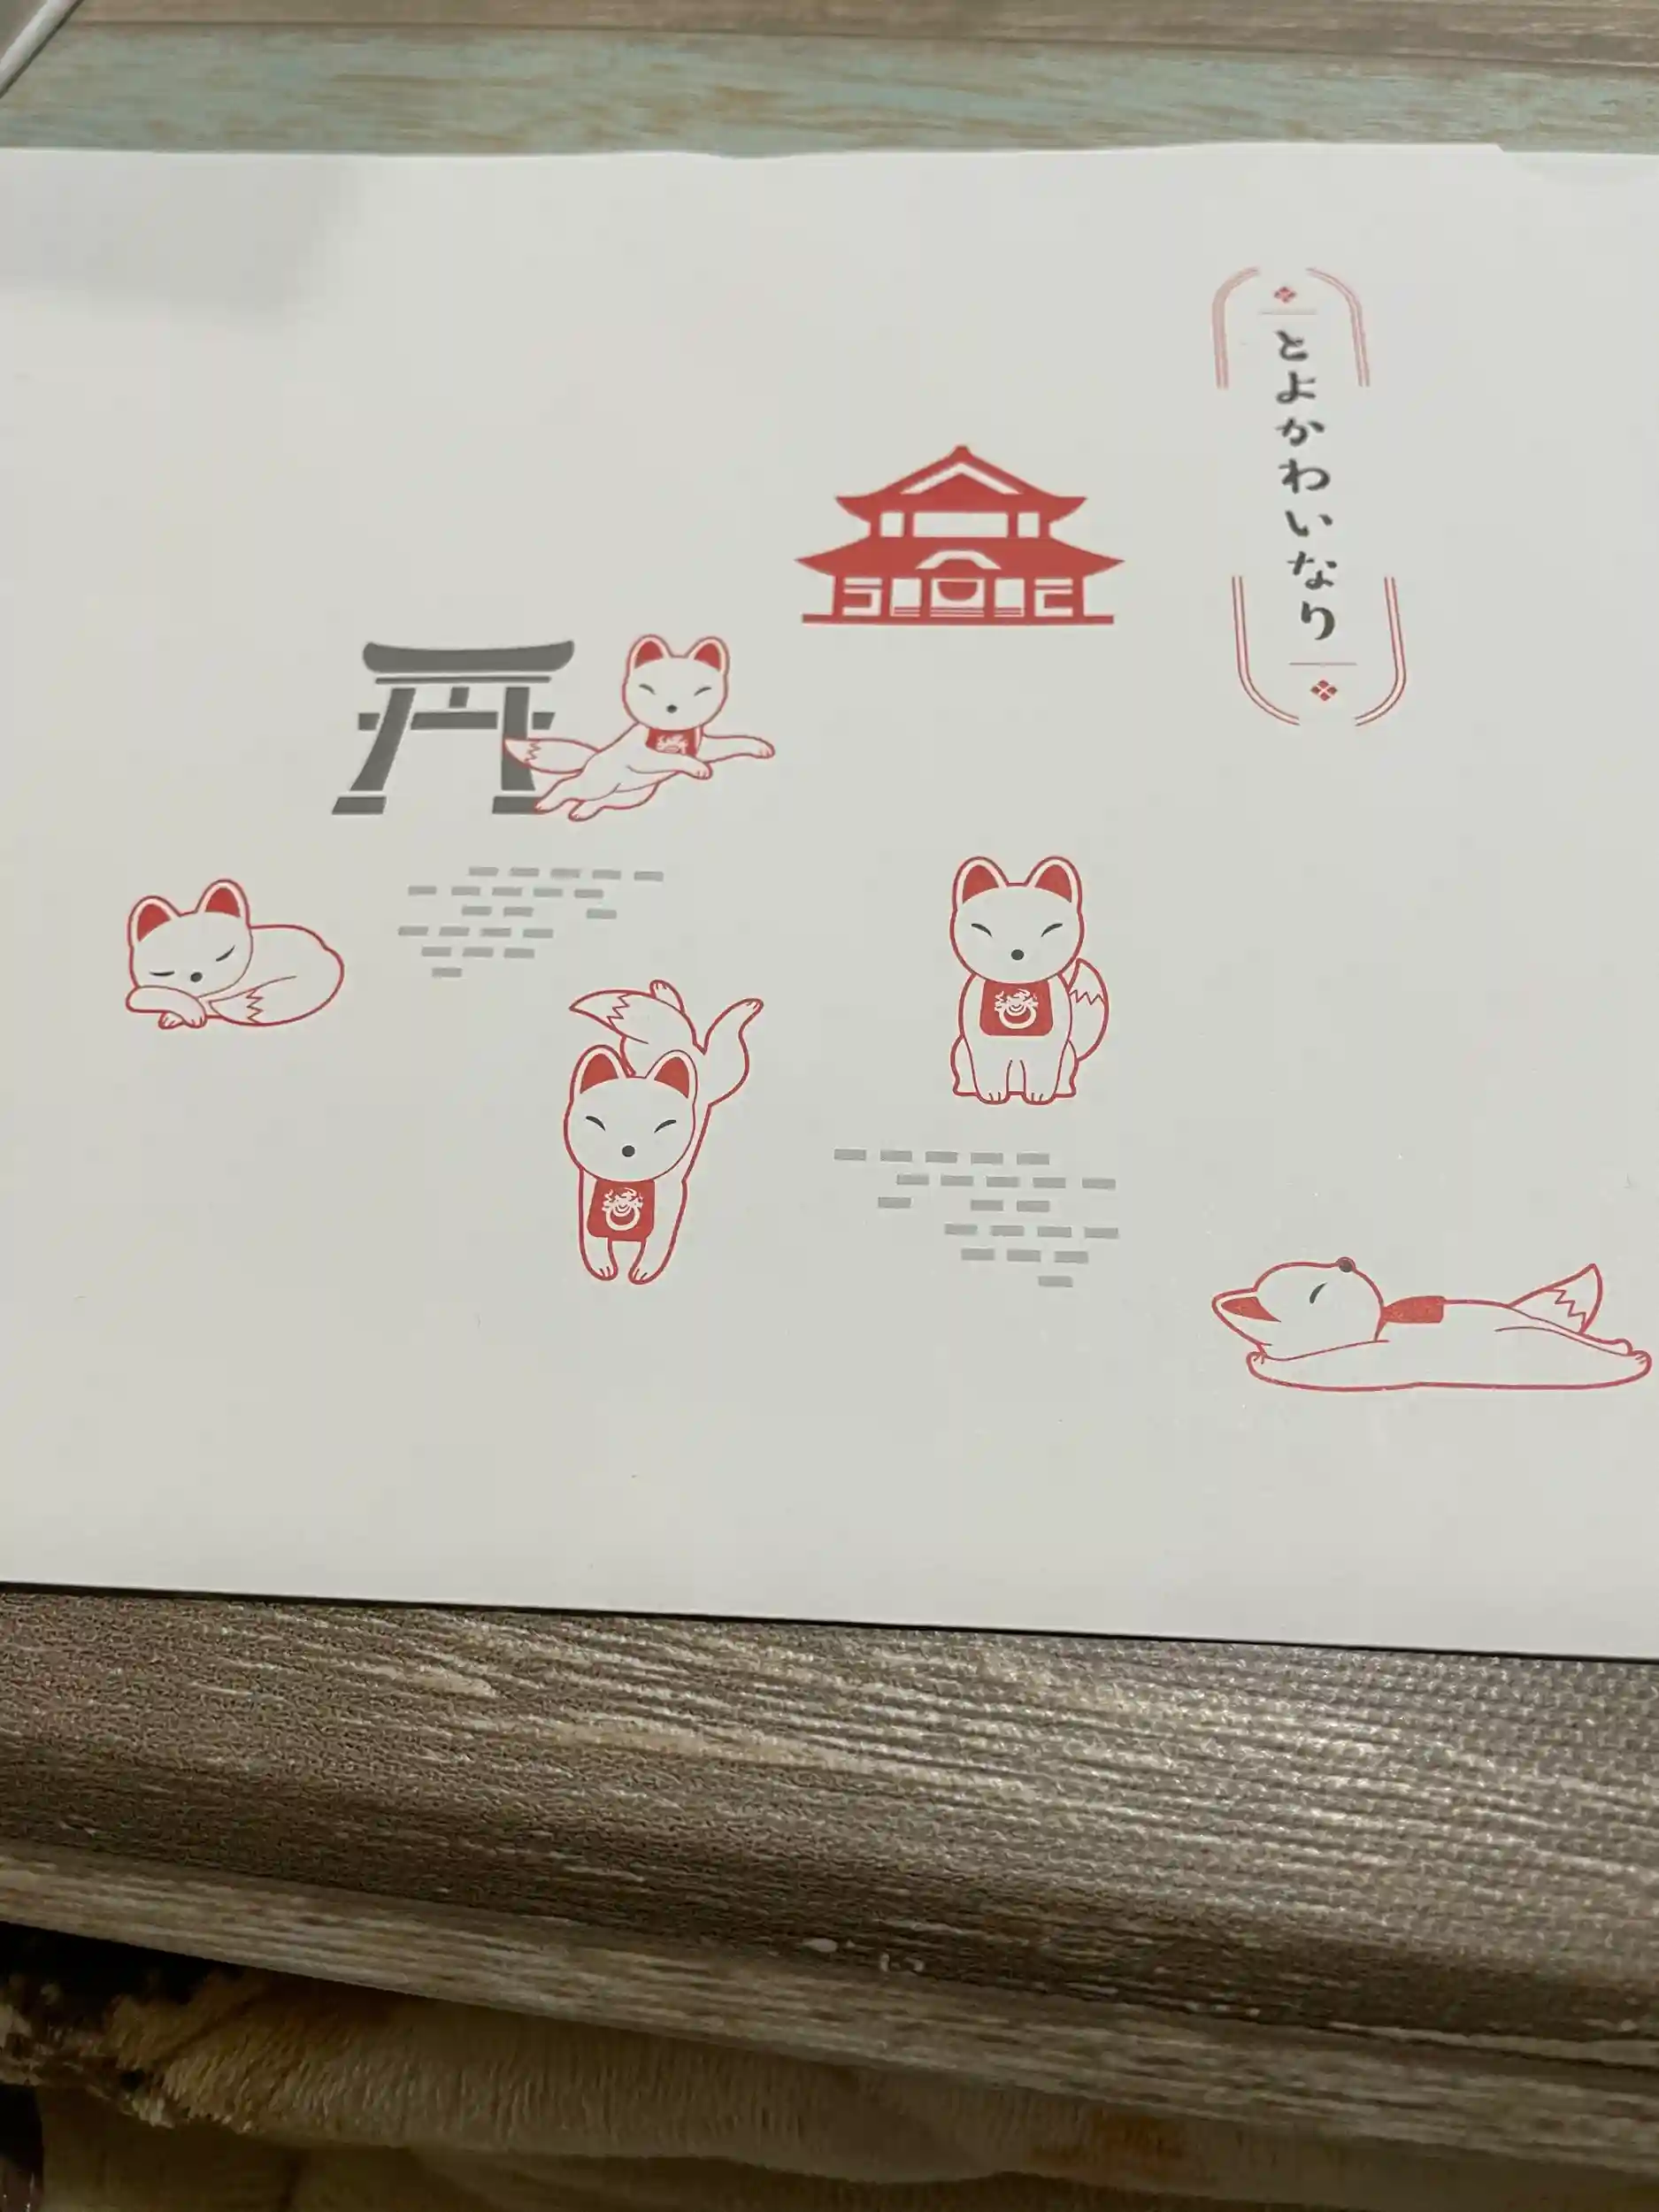 とよかわいなり